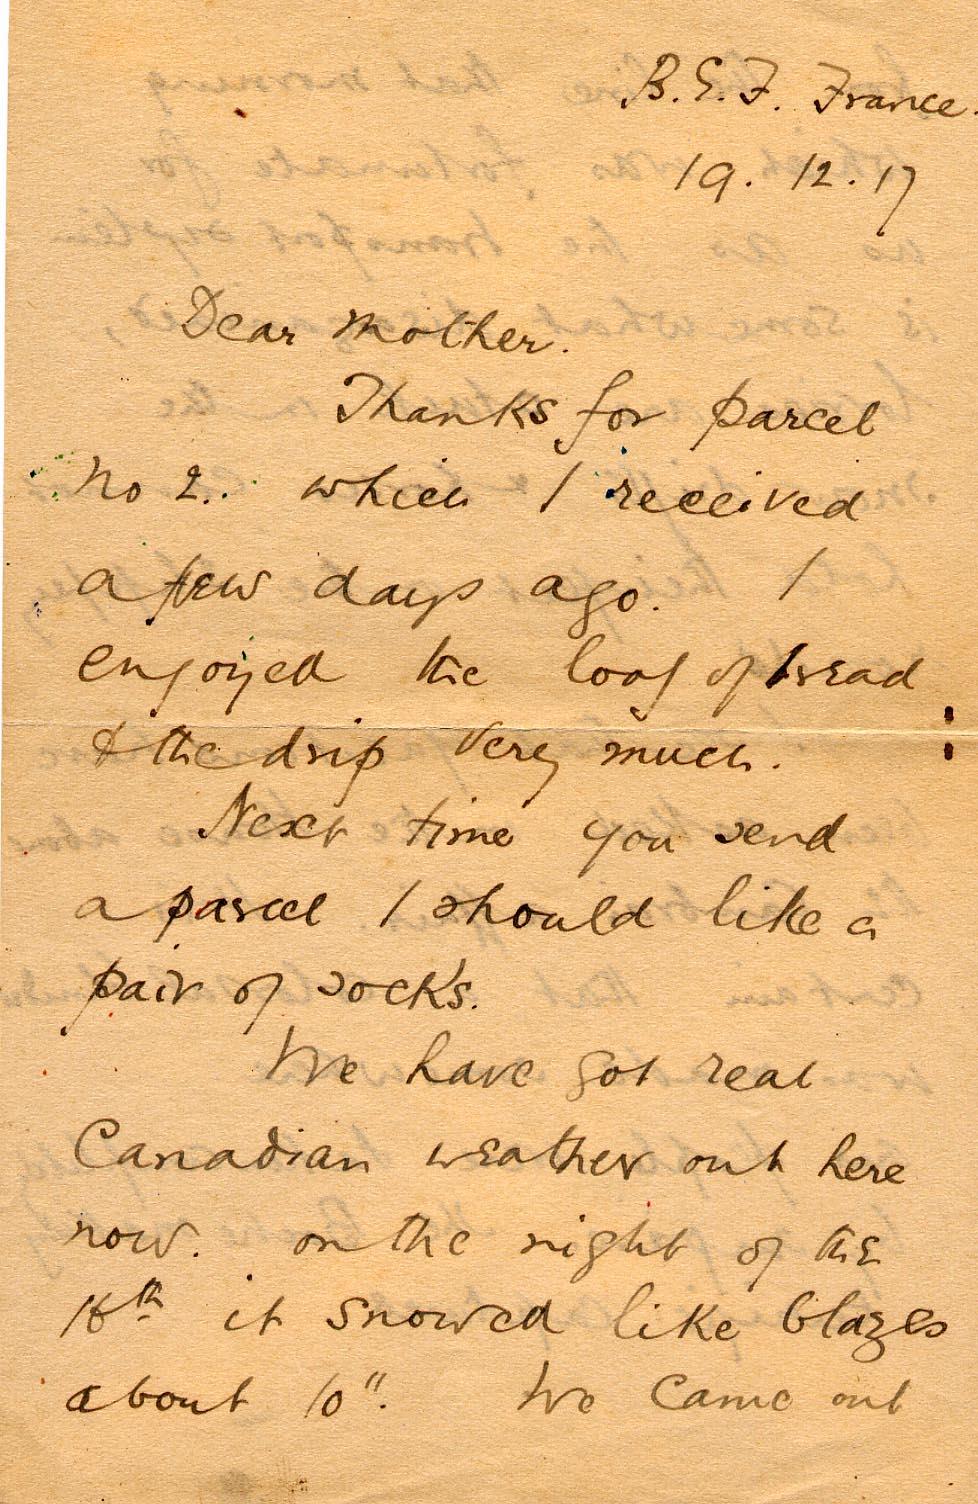 B.E.F. France.
19.12.17
Dear Mother.
Thanks for parcel
no 2.. which I received
a few days ago. I
enjoyed the loaf of bread
& the drip very much.
Next time you send
a parcel I should like a
pair of socks.
We have got real
Canadian weather out here
now. on the night of the
16th it snowed like blazes
about 10". We came out